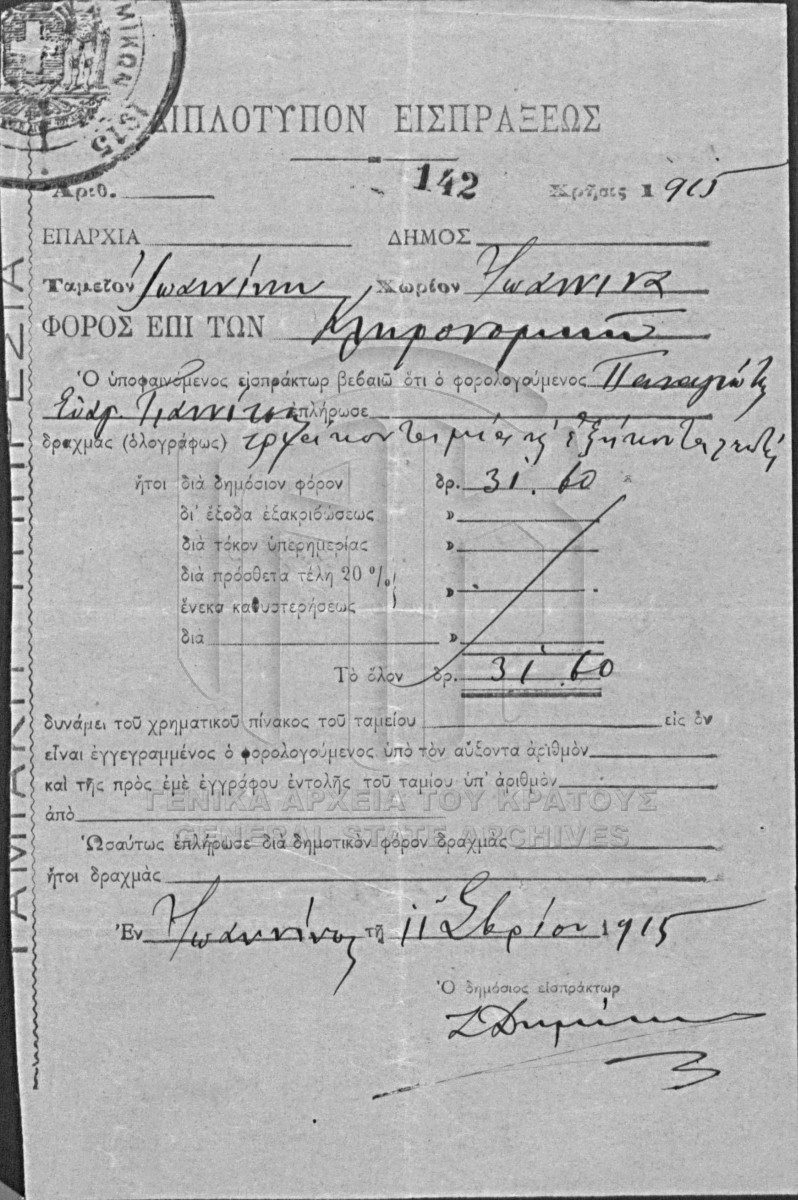 ΜΙΚΩΝ 1915
ΔΙΠΛΟΤΥΠΟΝ ΕΙΣΠΡΑΞΕΩΣ
Ἀριθ. 142 Χρῆσις 1915
ΕΠΑΡΧΙΑ ΔΗΜΟΣ
Ταμεῖον Ἰωαννίνων Χωρίον Ἰωάννινα
ΦΟΡΟΣ ΕΠΙ ΤΩΝ Κληρονομιῶν
Ὁ ὑποφαινόμενος εἰσπράκτωρ βεβαιῶ ὅτι ὁ φορολογούμενος Παναγιώτης
ἐπλήρωσε
δραχμὰς (ὁλογράφως) τριάκοντα μίαν καὶ ἑξήκοντα λεπτά
ἤτοι διὰ δημόσιον φόρον δρ. 31.60
δι' ἔξοδα ἐξακριβώσεως »
διὰ τόκον ὑπερημερίας »
διὰ πρόσθετα τέλη 20 % »
ἕνεκα καθυστερήσεως
διὰ »
Τὸ ὅλον δρ. 31.60
δυνάμει τοῦ χρηματικοῦ πίνακος τοῦ ταμείου εἰς ὃν
εἶναι ἐγγεγραμμένος ὁ φορολογούμενος ὑπὸ τὸν αὔξοντα ἀριθμὸν
καὶ τῆς πρὸς ἐμὲ ἐγγράφου ἐντολῆς τοῦ ταμίου ὑπ' ἀριθμὸν
ΓΕΝΙΚΑ ΑΡΧΕΙΑ ΤΟΥ ΚΡΑΤΟΥΣ
ἀπὸ
GENERAL STATE ARCHIVES
Ὡσαύτως ἐπλήρωσε διὰ δημοτικὸν φόρον δραχμὰς
ἤτοι δραχμὰς
Ἐν Ἰωαννίνοις τῇ 11 Σβρίου 1915
Ὁ δημόσιος εἰσπράκτωρ